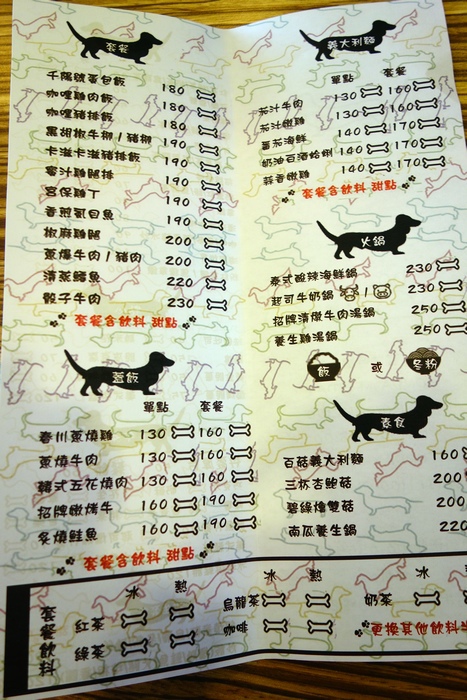 套餐
千陽號蛋包飯 180
咖哩雞肉飯 180
咖哩豬排飯 180
黑胡椒牛柳/豬柳 190
卡滋卡滋豬排飯 190
蜜汁雞腿排 190
宮保雞丁 190
香煎虱目魚 190
椒麻雞腿 200
蔥爆牛肉/豬肉 200
清蒸鱈魚 220
骰子牛肉 230
套餐含飲料 甜點
蓋飯
單點 套餐
春川蔥燒雞 130 160
蔥燒牛肉 130 160
韓式五花燒肉 130 160
招牌嫩烤牛 160 190
炙燒鮭魚 160 190
套餐含飲料 甜點
義大利麵
單點 套餐
茄汁牛肉 130 160
茄汁嫩雞 130 160
蕃茄海鮮 140 170
奶油白酒蛤蜊 140 170
蒜香嫩雞 140 170
套餐含飲料 甜點
火鍋
泰式酸辣海鮮鍋 230
起司牛奶鍋 / 230
招牌清燉牛肉湯鍋 250
養生雞湯鍋 250
飯 或 冬粉
素食
百菇義大利麵 160
三杯杏鮑菇 200
碧綠燴雙菇 200
南瓜養生鍋 220
套餐飲料
冰 熱
紅茶
綠茶
冰 熱
烏龍茶
咖啡
冰
奶茶
更換其他飲料